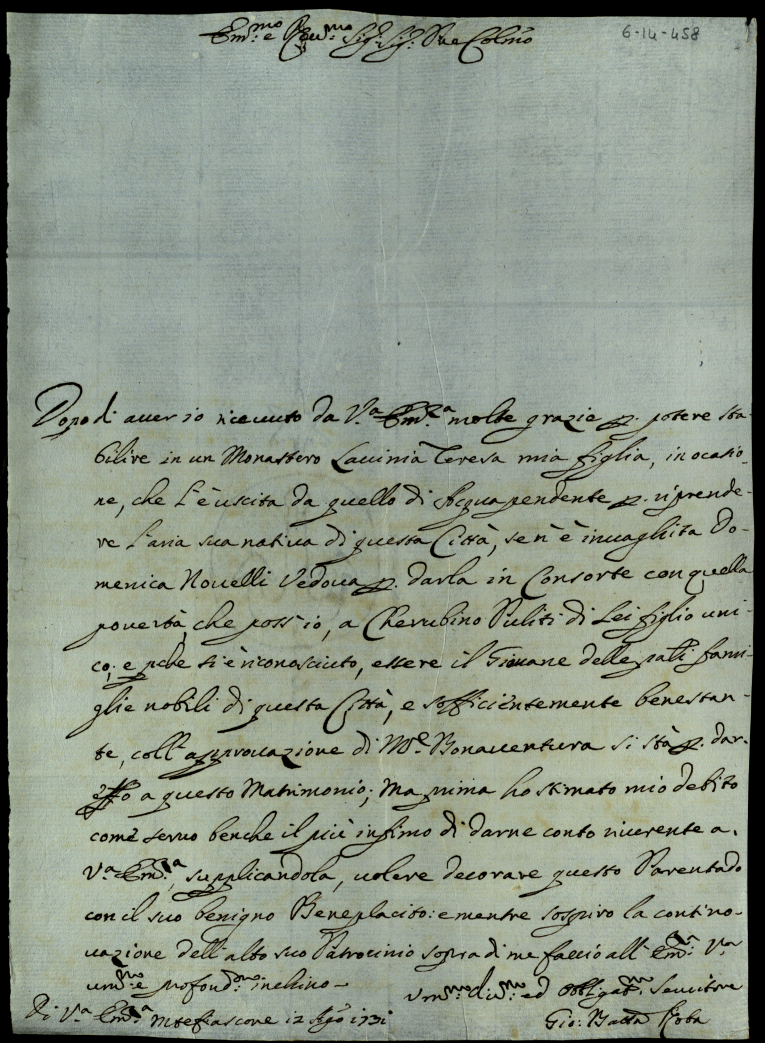 Em.mo e Rev.mo Sig.r Sig.r Pne Colmo
6-14-458
Dopo di aver io ricevuto da V.a Em.za molte grazie p. potere sta-
bilire in un Monastero Lavinia Teresa mia figlia, in ocasio-
ne, che l'è uscita da quello di Acquapendente p. riprende-
re l'aria sua nativa di questa Città, se n'è invaghita Do-
menica Novelli Vedova p. darla in Consorte con quella
povertà, che poss'io, a Cherubino Puliti di Lei figlio uni-
co; e pche si è riconosciuto, essere il Giovane delle pali fami-
glie nobili di questa Città, e sofficientemente benestan-
te, coll'approvazione di M.re Bonaventura si stà p. dar-
e effo a questo Matrimonio; Ma prima ho stimato mio debito
come servo benche il più infimo di darne conto riverente a
V.a Em.a, supplicandola, volere decorare questo Parentado
con il suo benigno Beneplacito: e mentre sospiro la contino-
vazione dell'alto suo Patrocinio sopra di me faccio all'Em.za V.ra
um.mo e profond.mo inchino-
Di V.a Em.za Mtefiascone 12 Agõ 1731
Um.mo di.mo ed obbligat.mo Servitore
Gio: Batta Roba